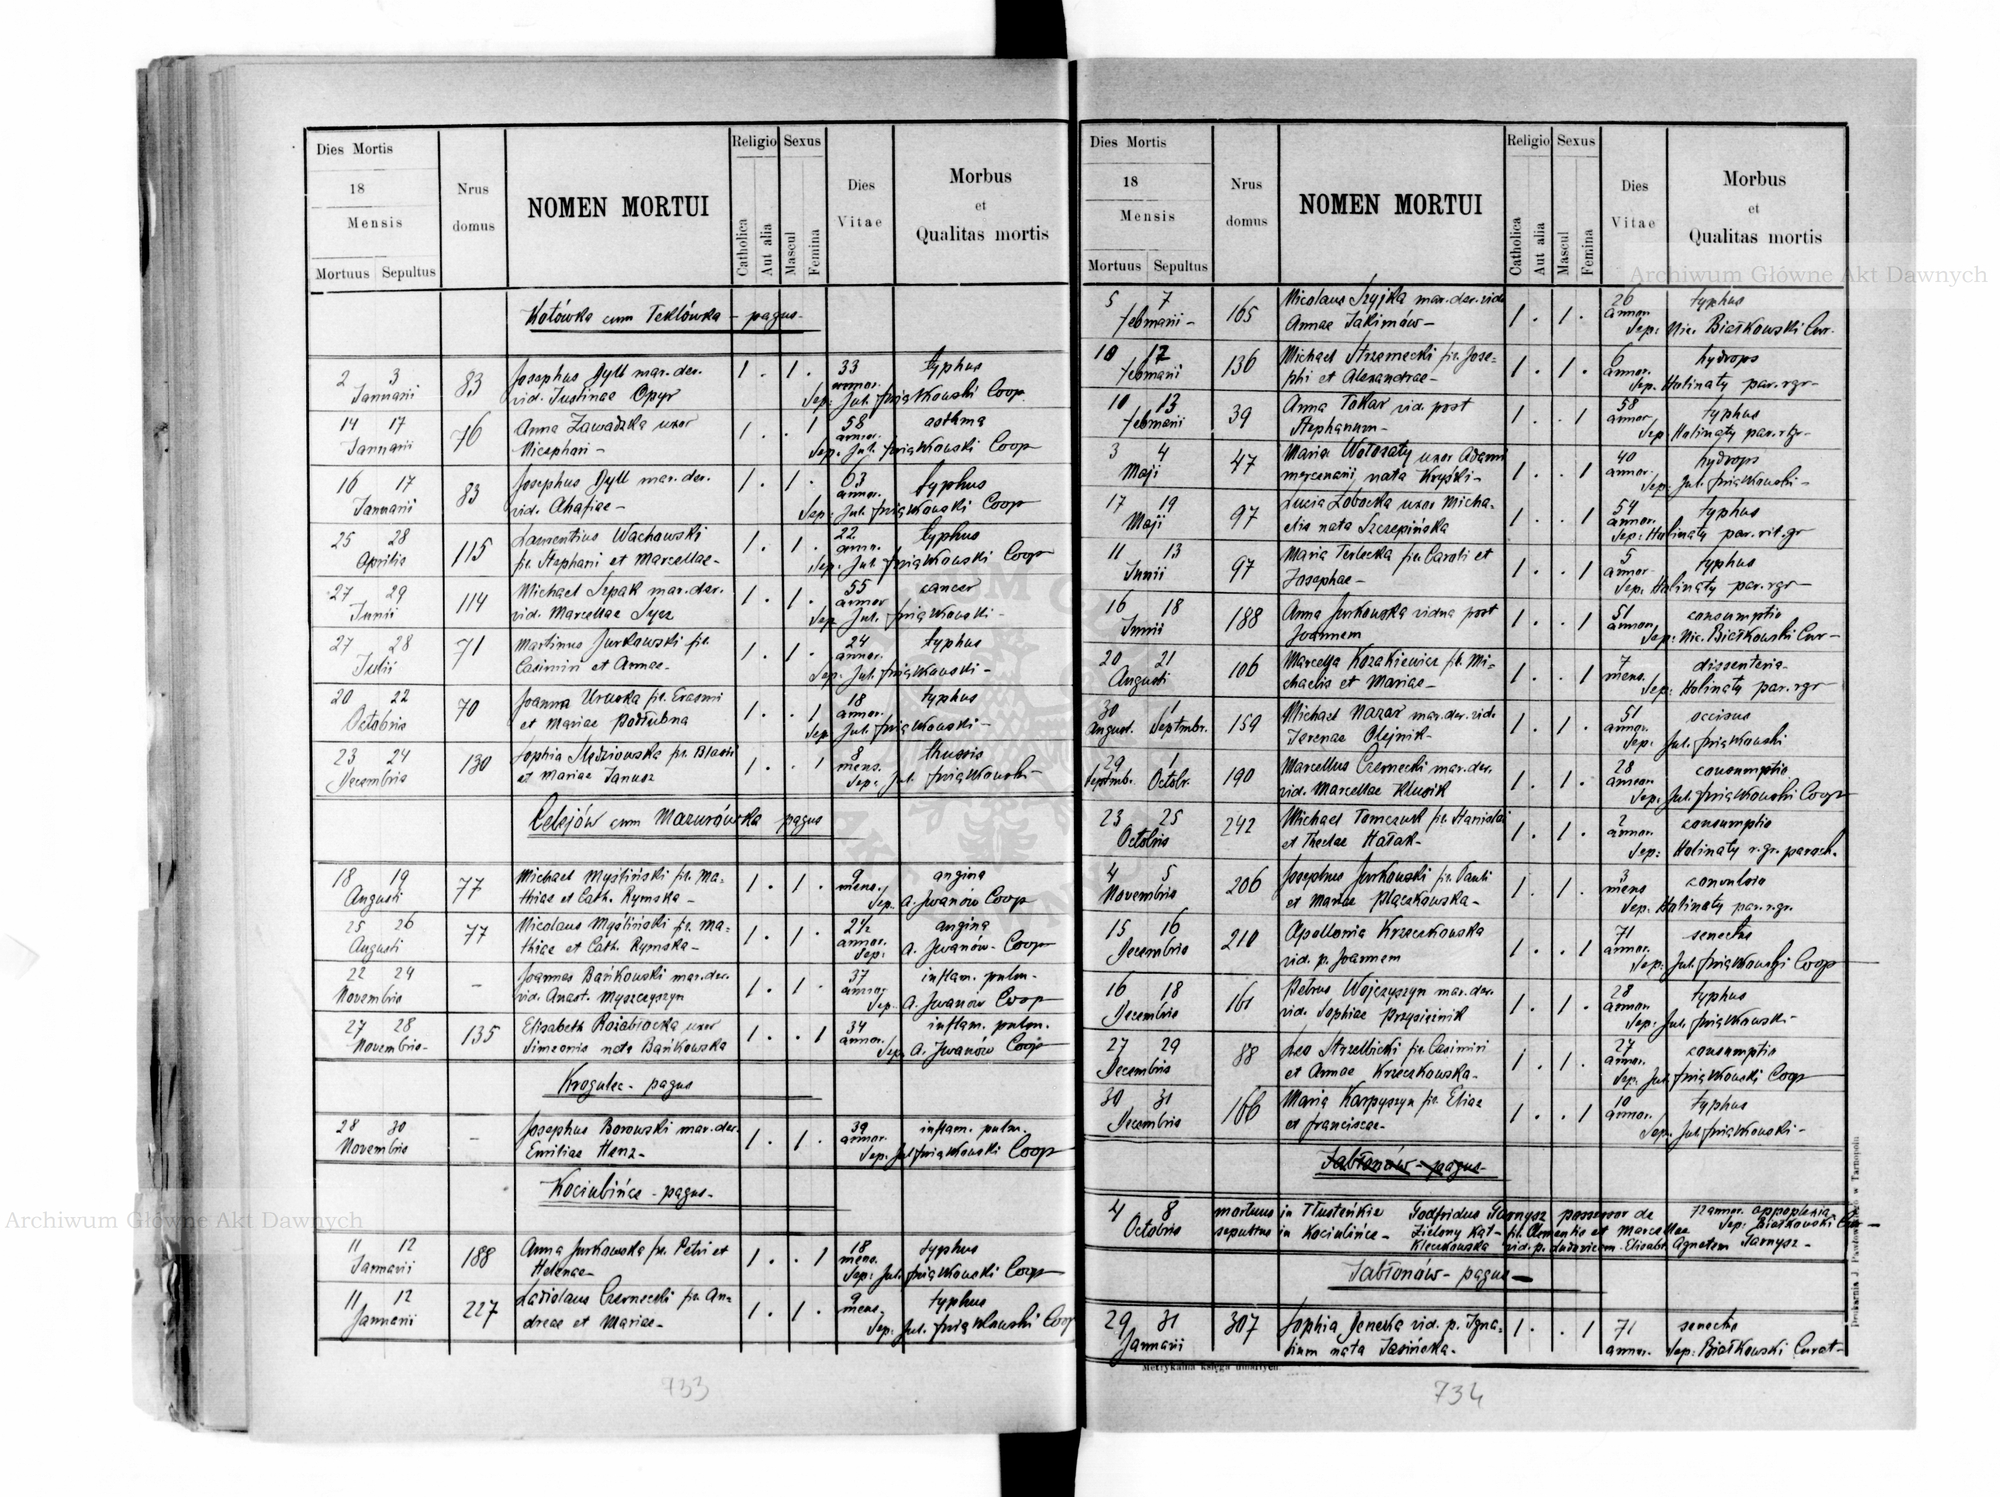 Dies Mortis
18
Mensis
Mortuus Sepultus
Nrus
domus
NOMEN MORTUI
Religio Sexus
Catholica
Aut alia
Mascul
Femina
Dies
Vitae
Morbus
et
Qualitas mortis
Kotówka cum Teklówka - pagus -
2 3 Januarii 83 Josephus Dyll mar. der. 1 . 1 . 33 annor. typhus
vid. Justinae Opyr Sep: Jul. Świątkowski Coop
14 17 Januarii 76 Anna Zawadzka uxor 1 . . 1 58 annor. asthma
Nicephori - Sep. Jul. Świątkowski Coop
16 17 Januarii 83 Josephus Dyll mar. der. 1 . 1 . 63 annor. typhus
vid. Ahafiae - Sep. Jul. Świątkowski Coop
25 28 Aprilis 115 Laurentius Wachowski 1 . 1 . 22 annor. typhus
fil. Stephani et Marcellae - Sep. Jul. Świątkowski Coop
27 29 Junii 114 Michael Szpak mar. der. 1 . 1 . 55 annor cancer
vid. Marcellae Sep. Jul. Świątkowski -
27 28 Julii 71 Martinus Jurkowski fil. 1 . 1 . 24 annor. typhus
Casimiri et Annae - Sep. Jul. Świątkowski -
20 22 Octobris 70 Joanna Uruska fil. Erasmi 1 . . 1 18 annor. typhus
et Mariae Podłubna Sep. Jul. Świątkowski -
23 24 Decembris 130 Sophia fil. Blasii 1 . . 1 8 mens. thussis
et Mariae Janusz Sep: Jul. Świątkowski -
Celejów cum Mazurówka pagus
18 19 Augusti 77 Michael Myśliński fil. Ma- 1 . 1 . 9 mens. angina
thiae et Cath. Rymska - Sep. A. Iwanów Coop
25 26 Augusti 77 Nicolaus Myśliński fil. Ma- 1 . 1 . 2½ annor. angina
thiae et Cath. Rymska - Sep: A. Iwanów - Coop
22 24 Novembris - Joannes Bańkowski mar. der. 1 . 1 . 37 annor inflam. pulm.
vid. Anast. Myszczyszyn Sep. A. Iwanów Coop
27 28 Novembris - 135 Elisabeth uxor 1 . . 1 34 annor. inflam. pulm.
Simeonis nata Bańkowska Sep. A. Iwanów Coop
Krogulec - pagus
28 30 Novembris - Josephus Borowski mar. der. 1 . 1 . 39 annor. inflam. pulm.
Emiliae Henz - Sep. Jul Świątkowski Coop
Kociubińce - pagus -
11 12 Januarii 188 Anna Jurkowska fil. Petri et 1 . . 1 18 mens. typhus
Helenae - Sep: Jul. Świątkowski Coop
11 12 Januarii 227 Ladislaus Czernecki fil. An- 1 . 1 . 9 mens. typhus
dreae et Mariae - Sep: Jul. Świątkowski Coop
733
Dies Mortis
18
Mensis
Mortuus Sepultus
Nrus
domus
NOMEN MORTUI
Religio Sexus
Catholica
Aut alia
Mascul
Femina
Dies
Vitae
Morbus
et
Qualitas mortis
5 7 Februarii - 165 Nicolaus Szyjka mar. der. vid. 1 . 1 . 26 annor typhus
Annae Jakimów - Sep: Nic. Białkowski Cur.
10 12 Februarii 136 Michael Strzamecki fil. Jose- 1 . 1 . 6 annor. hydrops
phi et Alexandrae - Sep. Holinaty par. rgr -
10 13 Februarii 39 Anna Tokar vid. post 1 . . 1 58 annor. typhus
Stephanum - Sep. Holinaty par. rgr -
3 4 Maji 47 Maria Wołosaty uxor Adami 1 . . 1 40 annor. hydrops
mercenarii nata Kryśki - Sep. Jul. Świątkowski -
17 19 Maji 97 Lucia Łobocka uxor Micha- 1 . . 1 54 annor. typhus
elis nata Szczepińska Sep: Holinaty par. rit. gr
11 13 Junii 97 Maria Terlecka fil. Caroli et 1 . . 1 5 annor typhus
Josephae - Sep. Holinaty par. rgr -
16 18 Junii 188 Anna Jurkowska vidua post 1 . . 1 51 annor. consumptio
Joannem Sep: Nic. Białkowski Cur -
20 21 Augusti 106 Marcella Kozakiewicz fil. Mi- 1 . . 1 7 mens. dissenteria -
chaelis et Mariae - Sep: Holinaty par. rgr
30 1 August. Septmbr. 159 Michael Nazar mar. der. vid. 1 . 1 . 51 annor. occisus
Irenae Olejnik - Sep. Jul. Świątkowski
29 1 Septmb. Octobr. 190 Marcellus Czernecki mar. der. 1 . 1 . 28 annor. consumptio
vid. Marcellae Klusik Sep. Jul. Świątkowski Coop
23 25 Octobris 242 Michael Tomczuk fil. Stanislai 1 . 1 . 2 annor. consumptio
et Theclae Hałak - Sep: Holinaty r. gr. paroch.
4 5 Novembris 206 Josephus Jurkowski fil. Pauli 1 . 1 . 3 mens convulsio
et Mariae Płaczkowska - Sep. Holinaty par. r. gr.
15 16 Decembris 210 Apollonia Krzeczkowska 1 . . 1 71 annor. senectus
vid. p. Joannem Sep: Jul. Świątkowski Coop
16 18 Decembris 161 Petrus Wojczyszyn mar. der. 1 . 1 . 28 annor. typhus
vid. Sophiae Przysiężnik Sep. Jul. Świątkowski -
27 29 Decembris 88 Leo Strzelbicki fil. Casimiri 1 . 1 . 27 annor. consumptio
et Annae Krzeczkowska - Sep. Jul. Świątkowski Coop
30 31 Decembris 166 Maria Karpyszyn fil. Eliae 1 . . 1 10 annor. typhus
et Franciscae - Sep. Jul. Świątkowski -
Jabłonów - pagus -
4 8 Octobris mortuus in Tłusteńkie Godfridus Garnysz possessor de 72 annor. appoplexia
sepultus in Kociubińce - Zielony Kąt - fil. Clementis et Marcellae Sep: Białkowski Cur -
Kleczkowska vid. p. Ludovicam Elisabt. Agnetem Garnysz -
Jabłonów - pagus -
29 31 Januarii 307 Sophia Deneka vid. p. Igna- 1 . . 1 71 annor. senectus
tium nata Jasińska - Sep: Białkowski Curat -
Metrykalna księga umarłych
734
Drukarnia J. Pawłowskiego w Tarnopolu
Archiwum Główne Akt Dawnych
Archiwum Główne Akt Dawnych